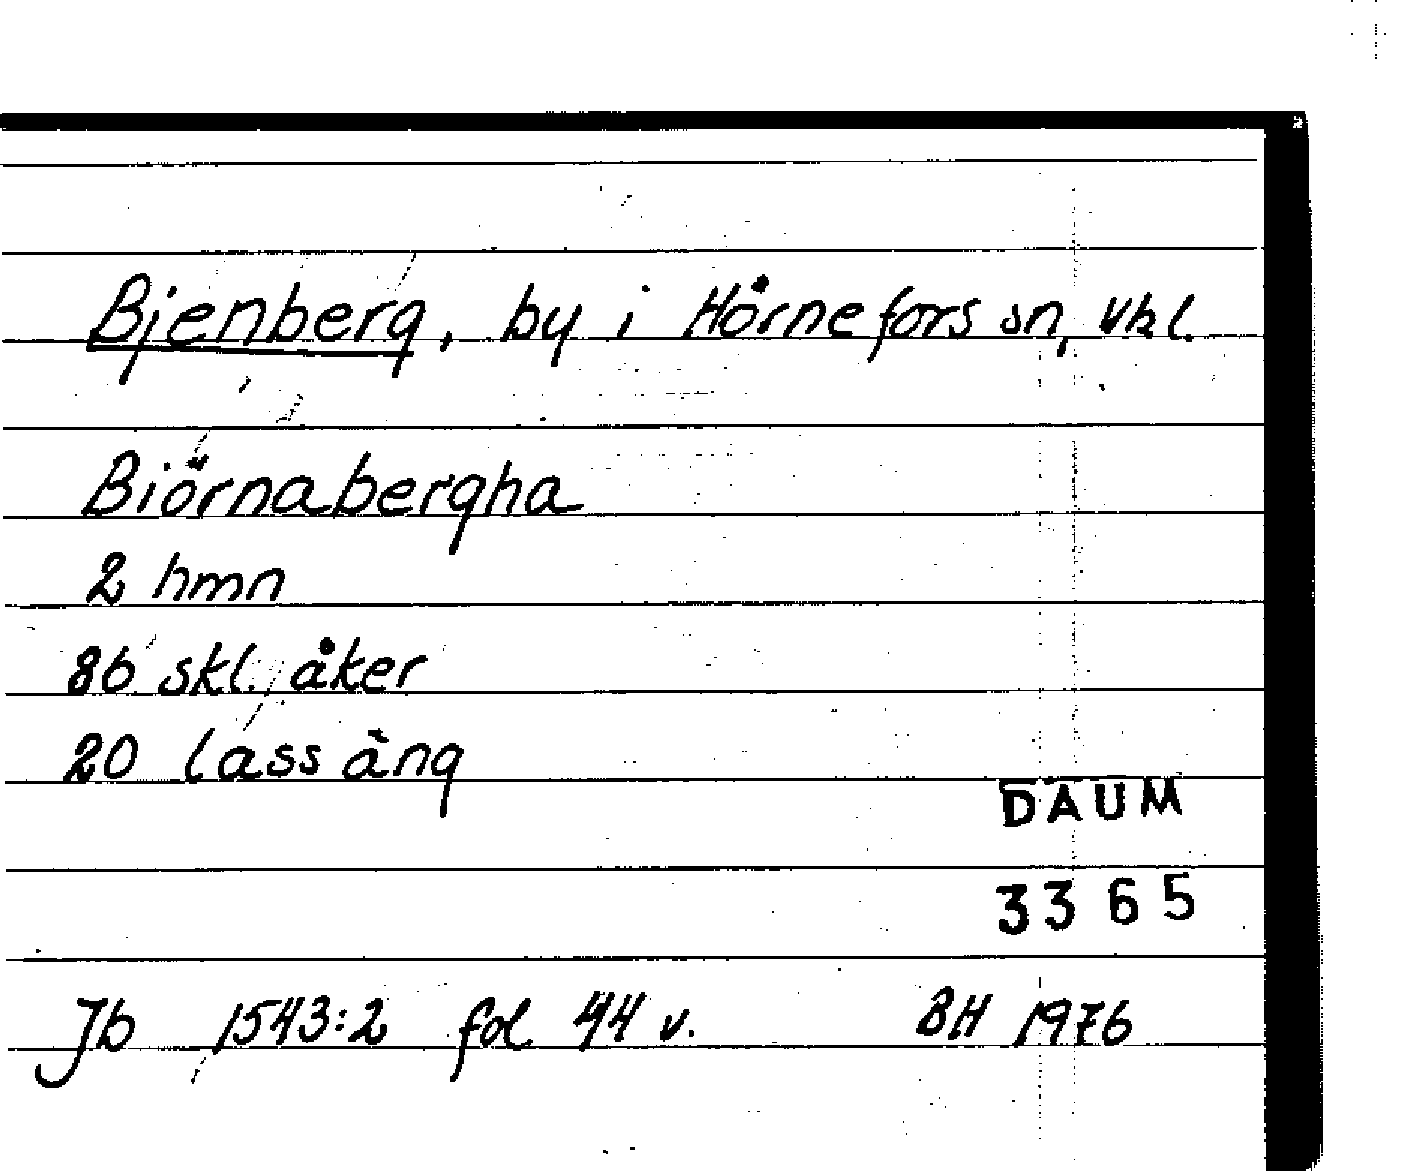 Bjenberg, by i Hörnefors sn, Vbl.
Biörnabergha
2 hmn
86 skl. åker
20 lass äng
DAUM
3365
Jb 1543:2 fol 44 v. BH 1976